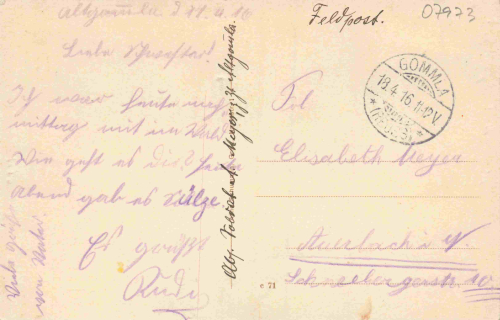 Altgomla d 17.4.16
Liebe Schwester!
Ich war heute nach
mittag mit im Wald
Wie geht es dir? heute
Abend gab es Sülze.
Es grüßt
Rudi
Viele Grüße
Abs. Soldat A. Meyer, z. Zt. Altgomla.
Feldpost.
07973
GOMMLA
18.4.16. 11-12 V.
Elisabeth Meyer
Auerbach i. V.
Schneebergerstr. 10
c 71